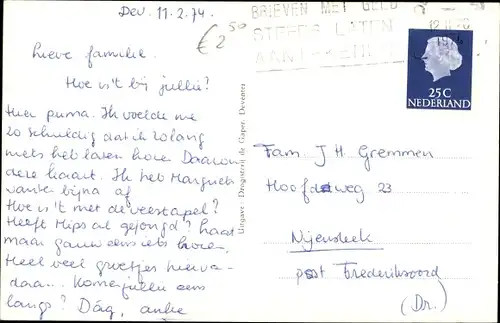 Dev. 11.2.74.
€ 2,50
BRIEVEN MET GELD
STEEDS LATEN
AANTEKENEN
25C
NEDERLAND
Lieve familie.
Hoe is't bij jullie?
Hier puma. Ik voelde me
zo schuldig dat ik zo lang
niets heb laten horen. Daarom
deze kaart. Ik heb
bijna af
Hoe is 't met de veestapel?
Heeft Mips al gejongd? Laat
maar gauw eens iets horen.
Heel veel groetjes hierva-
daan... Komen jullie eens
langs? Dág, anke
Uitgave: Drogisterij de Gaper, Deventer
Fam. J H Gremmen
Hoofdweg 23
Nijensleek
post Frederiksoord
(Dr.)